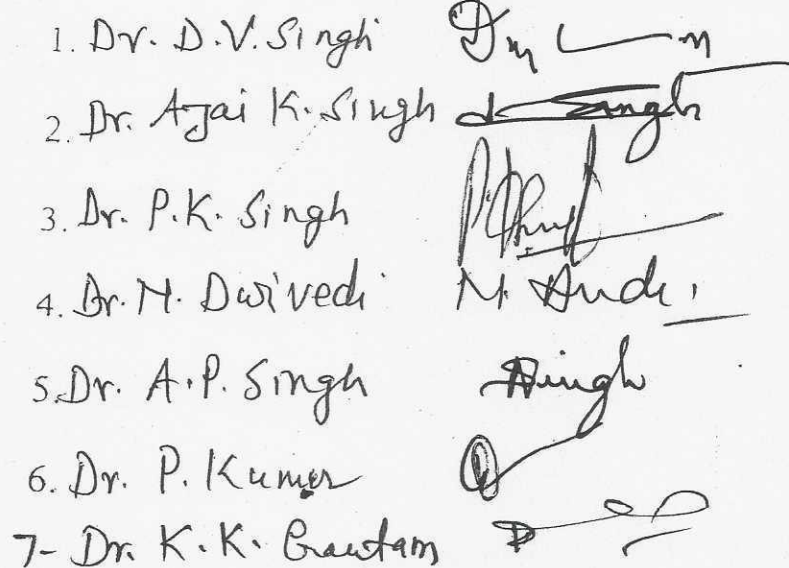 1. Dr. D.V. Singh
2. Dr. Ajai K. Singh Singh
3. Dr. P.K. Singh
4. Dr. N. Dwivedi N.
5. Dr. A.P. Singh Singh
6. Dr. P. Kumar
7- Dr. K.K. Gautam